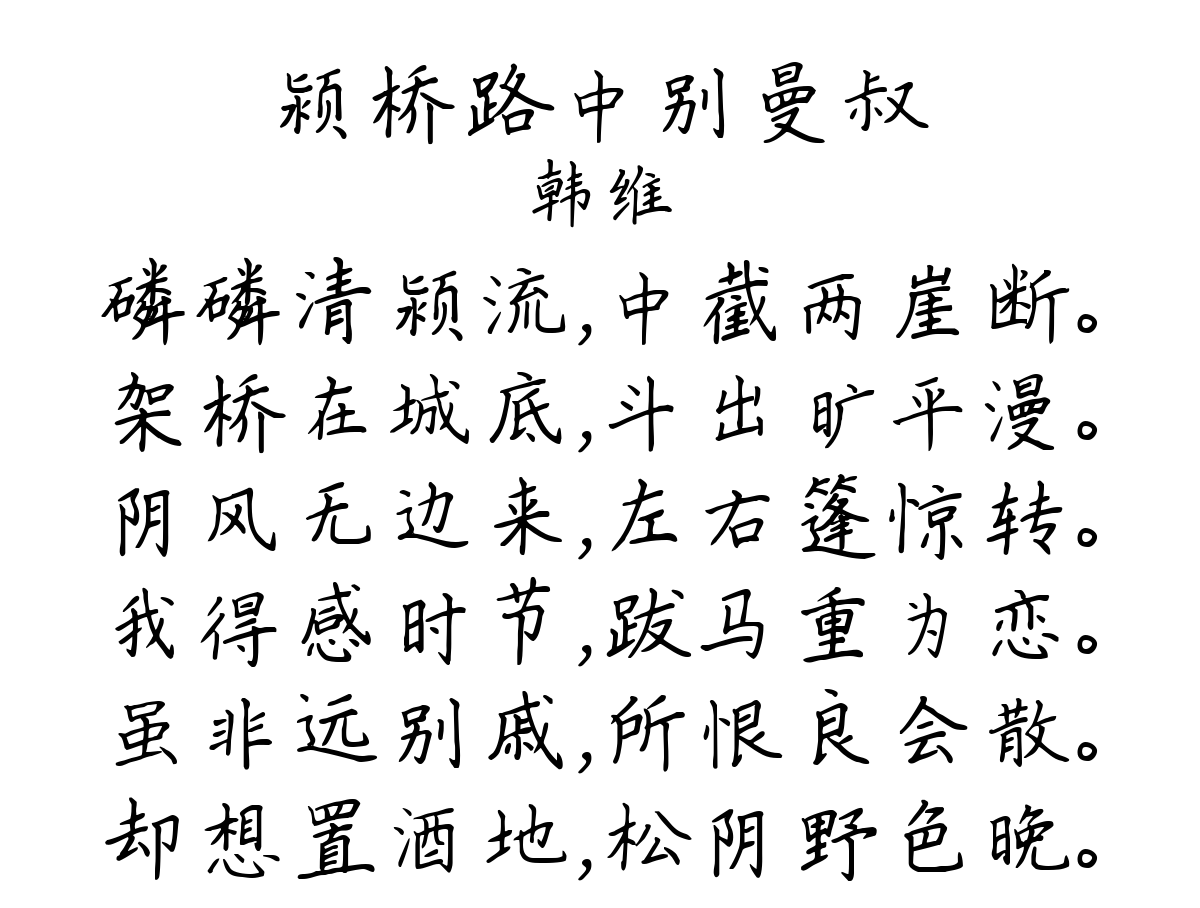 颍桥路中别曼叔
韩维
磷磷清颍流,中截两崖断。
架桥在城底,斗出旷平漫。
阴风无边来,左右篷惊转。
我得感时节,跋马重为恋。
虽非远别戚,所恨良会散。
却想置酒地,松阴野色晚。